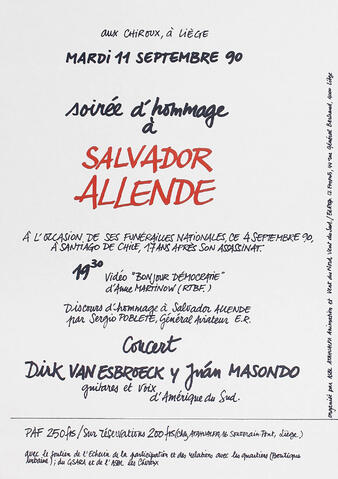 aux CHIROUX, à LIÈGE
MARDI 11 SEPTEMBRE 90
soirée d'hommage
à
SALVADOR
ALLENDE
À L'OCCASION DE SES FUNÉRAILLES NATIONALES, CE 4 SEPTEMBRE 90,
À SANTIAGO DE CHILE, 17 ANS APRÈS SON ASSASSINAT.
19 30 Vidéo "BONJOUR DÉMOCRATIE"
d'Anne MARTINOW (RTBF.)
Discours d'hommage à Salvador ALLENDE
par Sergio POBLETE, Général Aviateur E.R.
Concert
Dirk VAN ESBROECK y Juán MASONDO
guitares et voix
d'Amérique du Sud.
PAF 250 frs / Sur réservations 200 frs (chez ATAHUALPA 16 Souverain Pont, Liège.)
avec le soutien de l'Echevin de la participation et des relations avec les quartiers (Boutique
Urbaine); du GSARA et de l'ASBL les Chiroux
organisé par ASBL ATAHUALPA Animation et Vent du Nord, Vent du Sud /